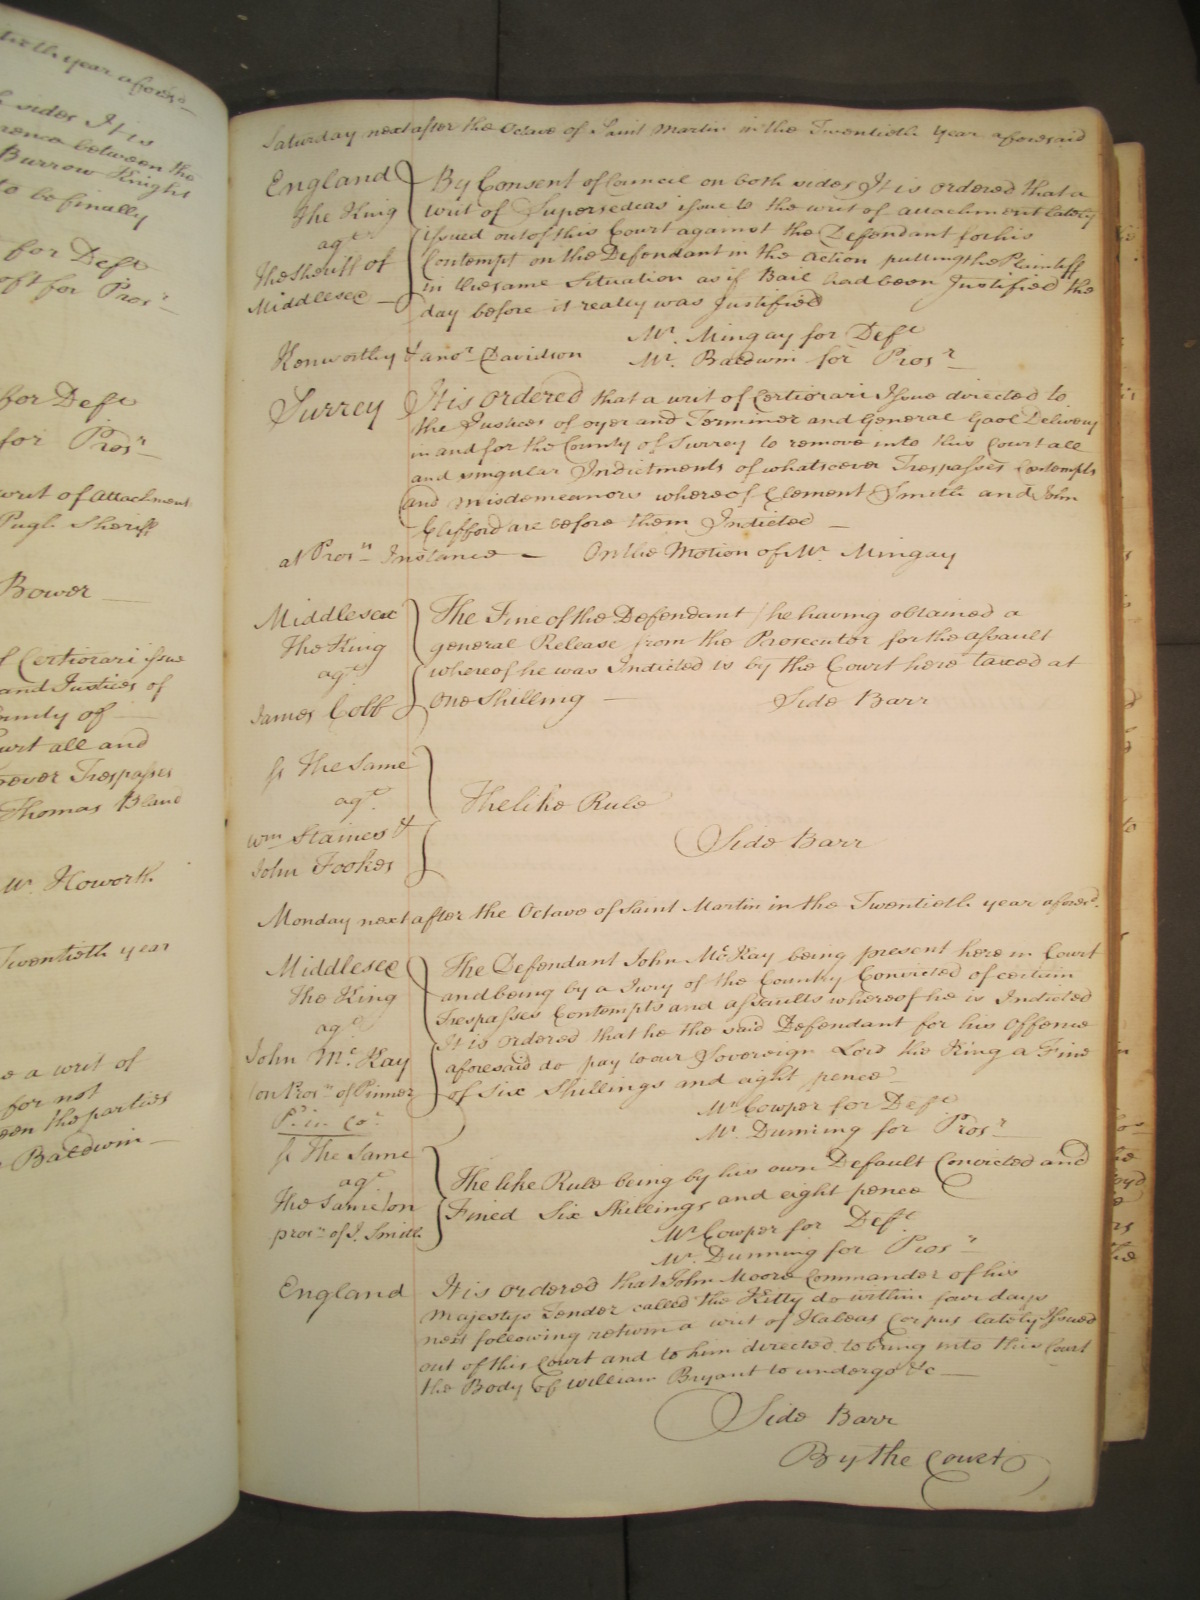 tieth year aforesd
sides It is
rence between the
Burrow Knight
to be finally
for Deft
oft for Prosr
for Deft
for Prosr
writ of attachment
Pugh Sheriff
Bower
f Certiorari issue
and Justices of
ounty of
ourt all and
soever Trespasses
Thomas Bland
Mr. Howorth
Twentieth year
e a writ of
for not
een the parties
Baldwin
Saturday next after the Octave of Saint Martin in the Twentieth year aforesaid
England
The King
agt
The Sheriff of
Middlesex
By Consent of Councel on both sides It is ordered that a
writ of Supersedeas issue to the writ of attachment lately
issued out of this Court against the Defendant for his
Contempt on the Defendant in the action putting the Plaintiff
in the same Situation as if Bail had been Justified the
day before it really was Justified
Mr. Mingay for Deft
Kenworthy & anor. Davidson Mr. Baldwin for Prosr
Surrey It is ordered that a writ of Certiorari Issue directed to
the Justices of oyer and Terminer and General Gaol Delivery
in and for the County of Surrey to remove into this Court all
and singular Indictments of whatsoever Trespasses Contempts
and misdemeanors whereof Clement Smith and John
Clifford are before them Indicted
at Prosrs Instance On the Motion of Mr. Mingay
Middlesex
The King
agt
James Cobb
The Fine of the Defendant (he having obtained a
general Release from the Prosecutor for the assault
whereof he was Indicted is by the Court here taxed at
One Shilling Side Barr
ss The Same
agt.
Wm Staines &
John Fookes
The like Rule
Side Barr
Monday next after the Octave of Saint Martin in the Twentieth year aforesd.
Middlesex
The King
agt
John Mc.Kay
(on Prosn of Pinner
The Defendant John McKay being present here in Court
and being by a Jury of the Country Convicted of certain
Trespasses Contempts and assaults whereof he is Indicted
It is ordered that he the said Defendant for his Offence
aforesaid do pay to our Sovereign Lord the King a Fine
of Six Shillings and eight pence
Mr Cowper for Deft
Mr. Dunning for Prosr
ss The Same
agt
The Same (on
prosn of J. Smith
The like Rule being by his own Default Convicted and
Fined Six Shillings and eight pence
Mr Cowper for Deft.
Mr. Dunning for Prosr
England It is ordered that John Moore Commander of his
Majestys Tender called the Kitty do within four days
next following return a writ of Habeas Corpus lately Issued
out of this Court and to him directed to bring into this Court
the Body of William Bryant to undergo &c
Side Barr
By the Court